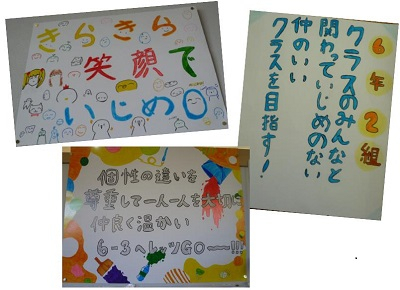 きらきら
笑顔で
いじめ0
6年2組
クラスのみんなと
関わっていじめのない
仲のいい
クラスを目指す!
個性の違いを
尊重して一人一人を大切に
仲良く温かい
6-3へレッツGO〜!!!